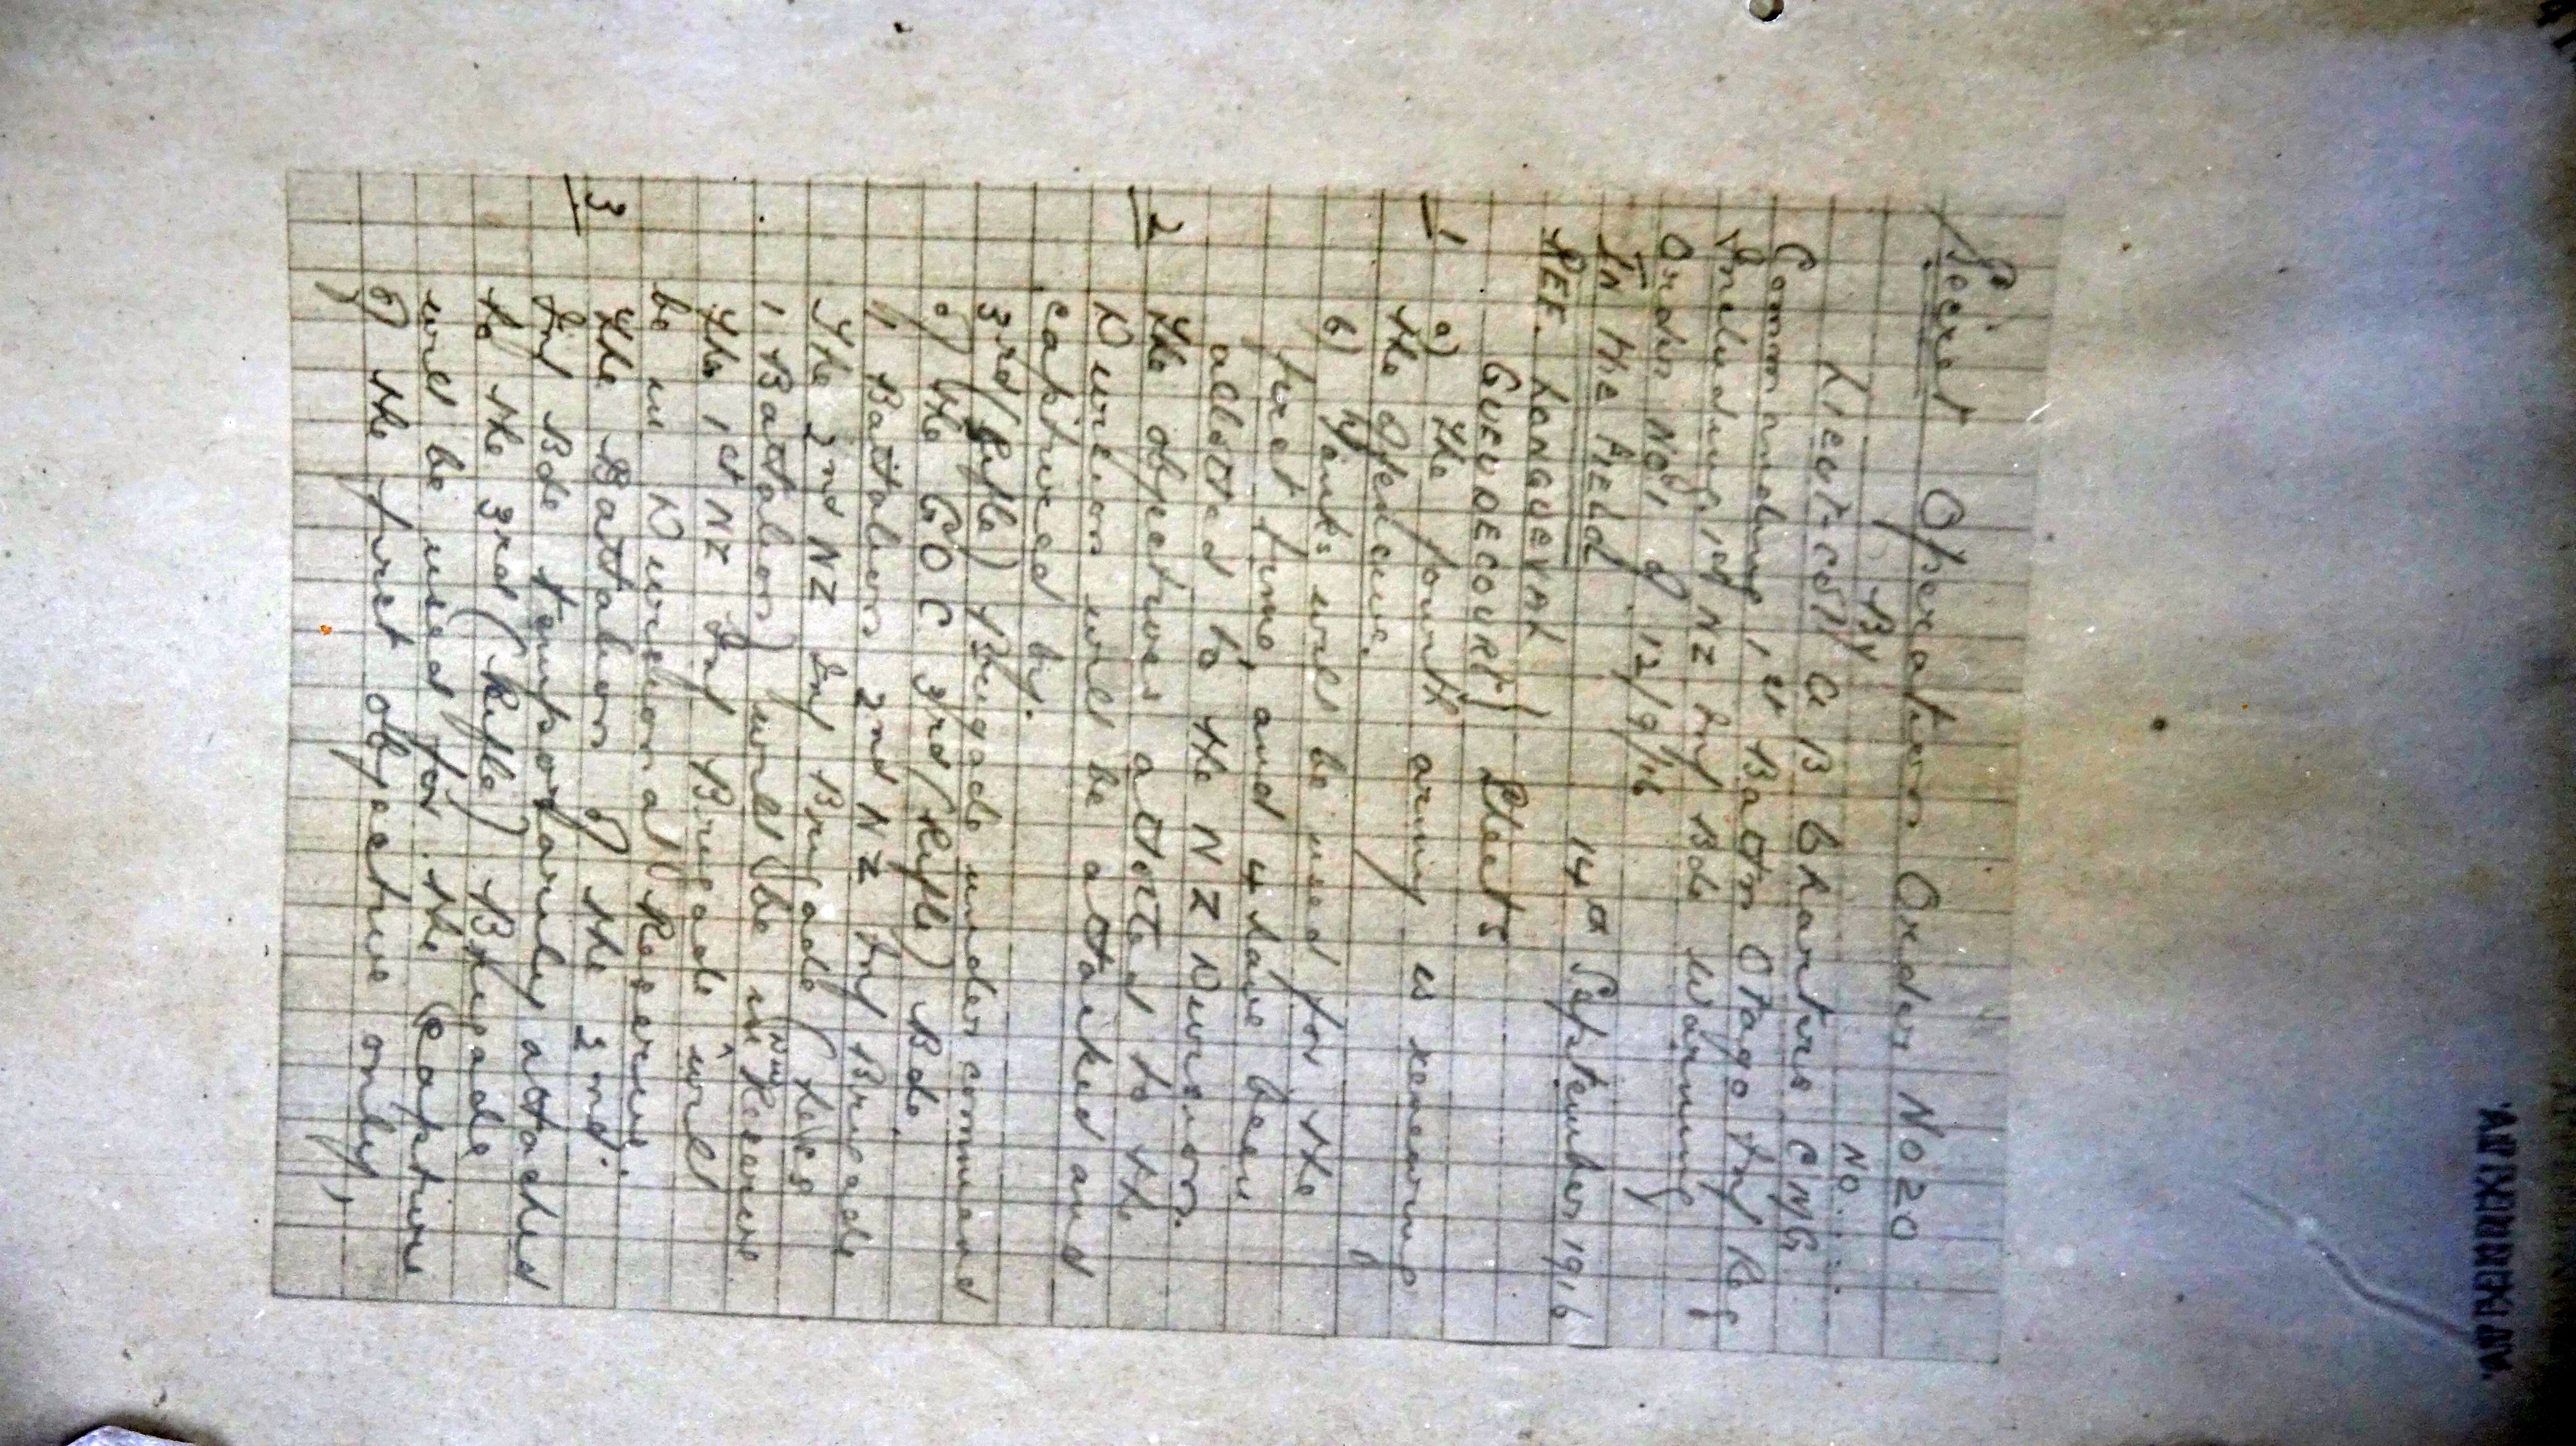 Secret Operation Order No 20
By No....
Lieut-Col A B Charters CMG
Commanding 1st Battn Otago Inf Reg
Including 1st NZ Inf Bde Warning
Order No 1 of 12/9/16
In the Field 14th September 1916
REF. LONGUEVAL
GUEUDECOURT } Sheets
1 a) The fourth army is renewing
the Offensive.
b) Tanks will be used for the
first time, and 4 have been
allotted to the NZ Division.
2 The objectives allotted to the
Division will be attacked and
captured by.
3rd (Rifle) Brigade under command
of the GOC 3rd (Rifle) Bde.
1 Battalion 2nd NZ Inf Brigade
The 2nd NZ Inf Brigade (less
1 Battalion) will be in Div Reserve
The 1st NZ Inf Brigade will
be in Divisional Reserve.
3 The Battalion of the 2nd.
Inf Bde temporarily attached
to the 3rd (Rifle) Brigade
will be used for the capture
of the first objective only,
APPENDIX IV.